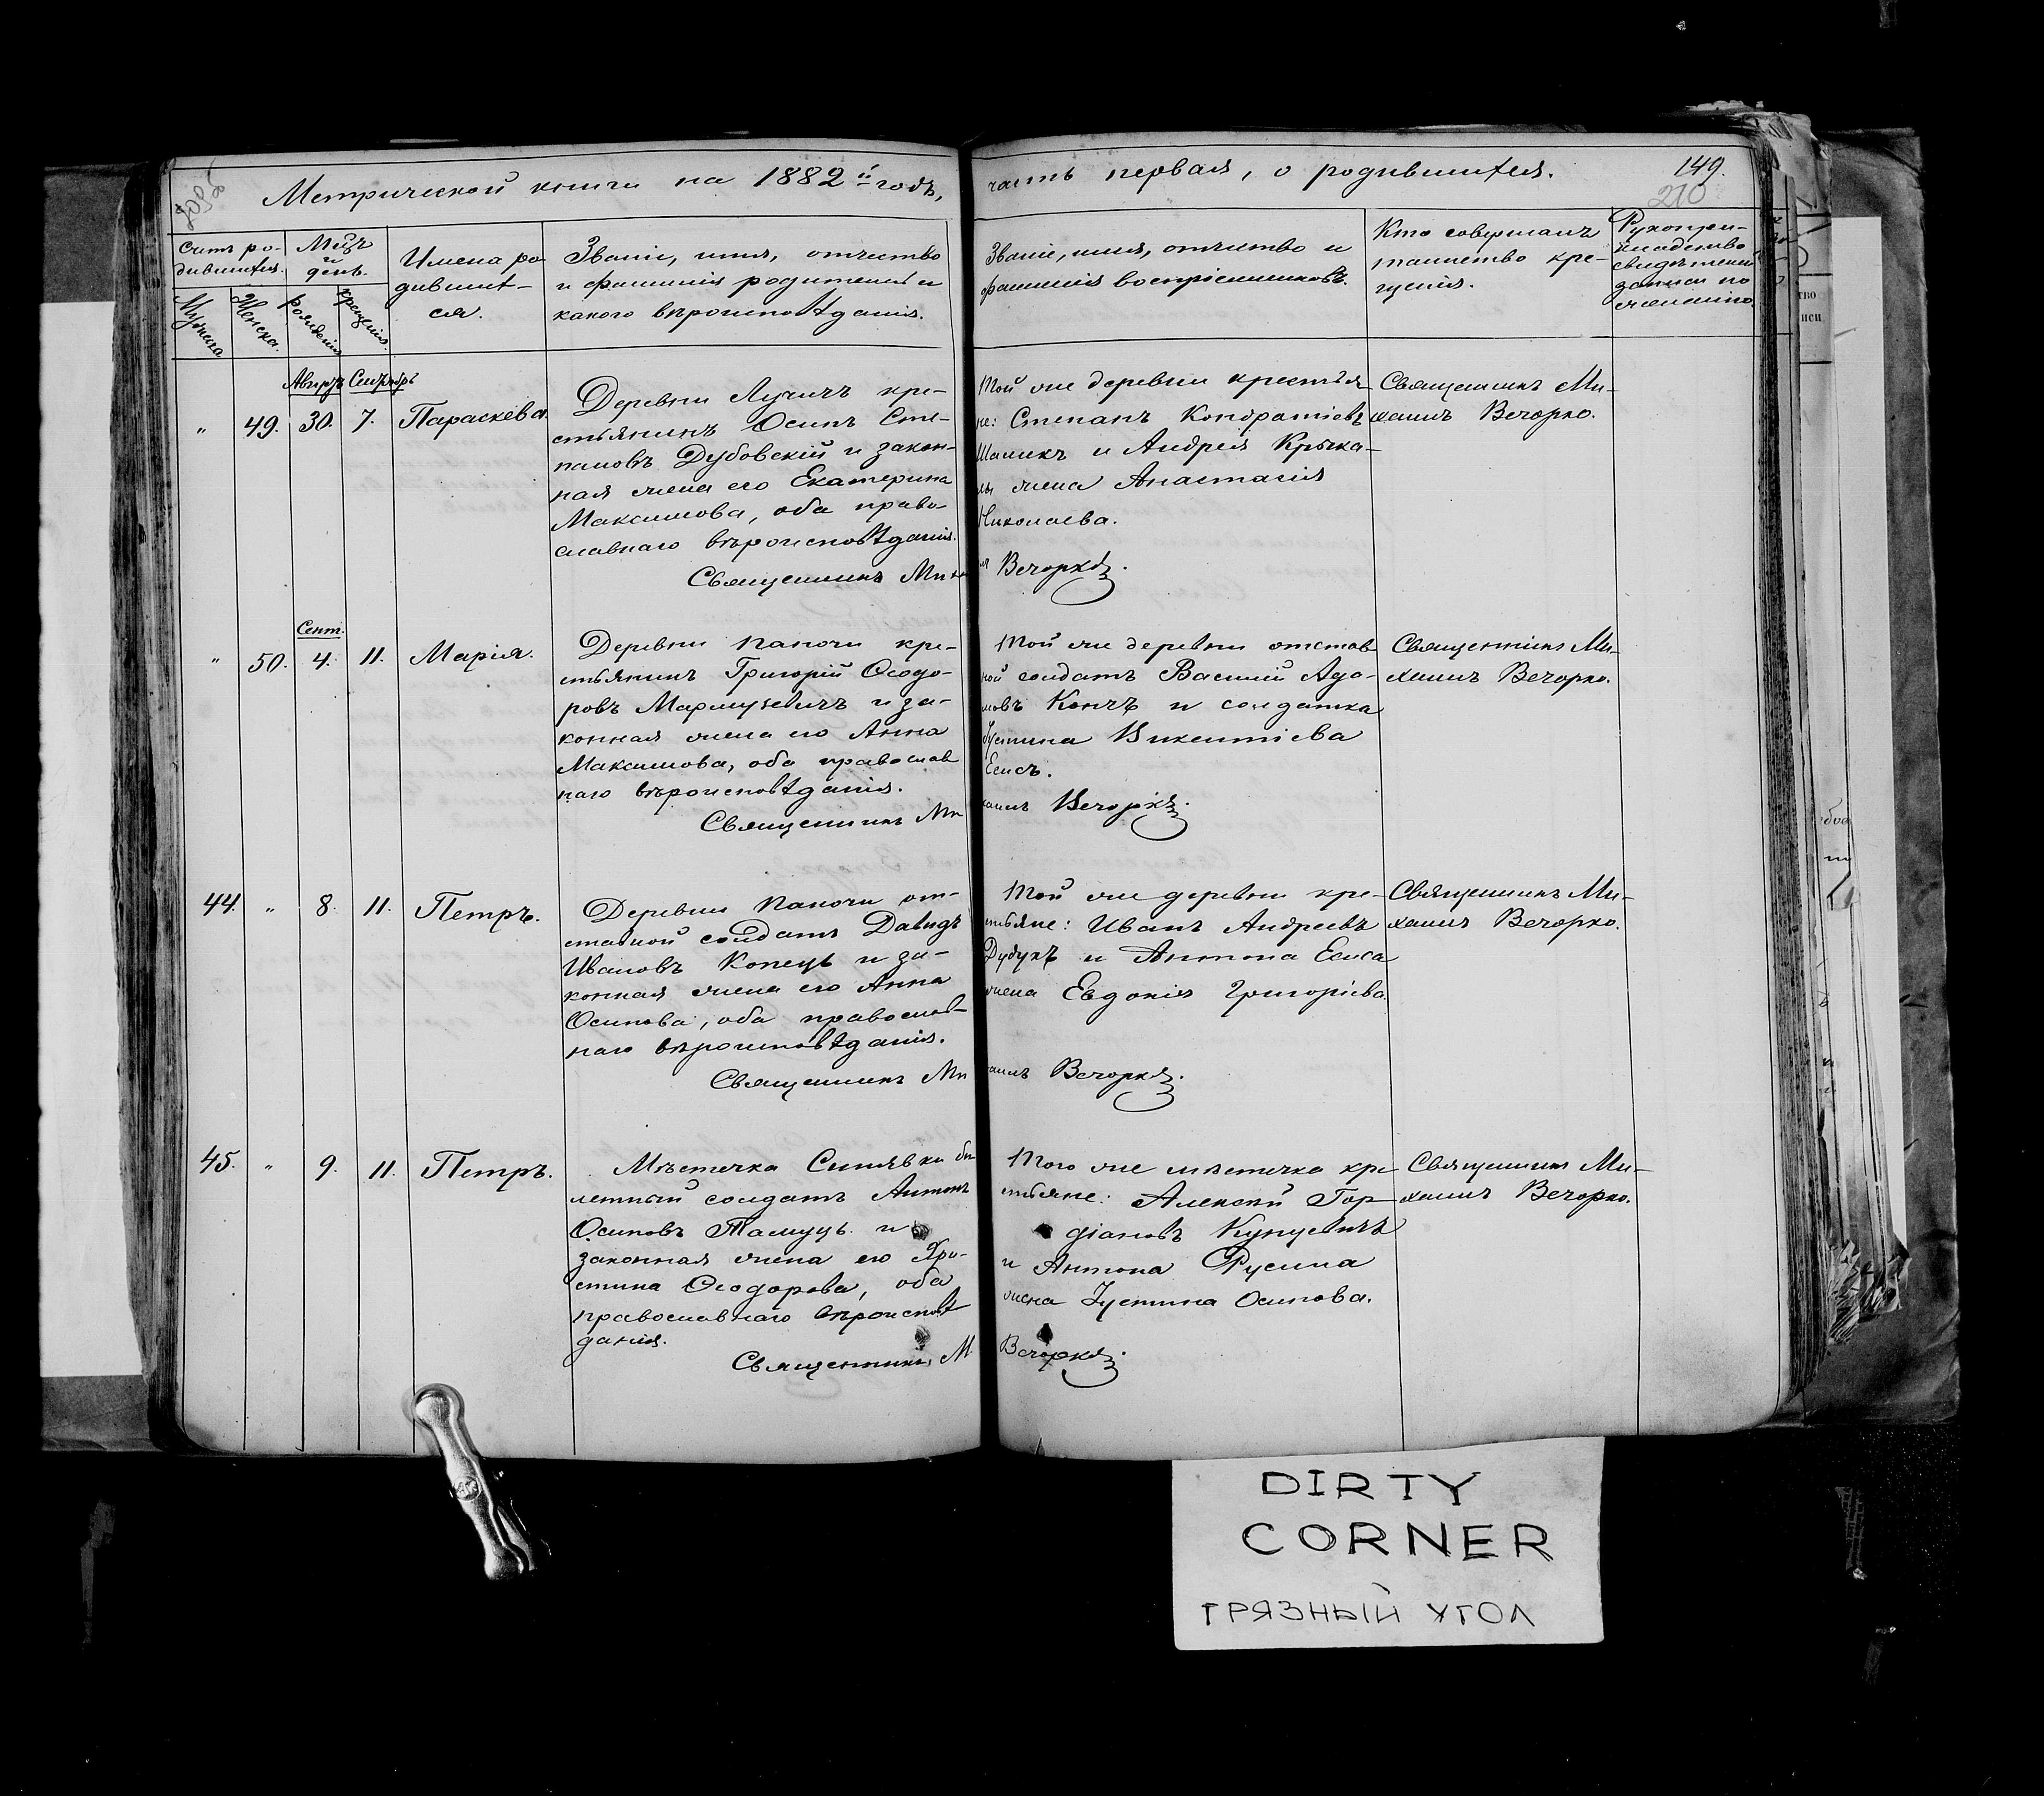 Метрической книги на 1882 й годъ,
часть первая, о родившихся.
149.
210
Счетъ ро-
дившихся.
Мужска
Женска.
Мѣцъ
и
день.
рожденія
крещенія.
Имена ро
дивших-
ся.
Званіе, имя, отчество
и фамилія родителей и
какого вѣроисповѣданія.
Званіе, имя, отчество и
фамилія воспріемниковъ.
Кто совершалъ
таинство кре-
щенія.
Рукопри-
кладство
свидѣтелей
записи по
желанію.
Августъ Сентябрь
" 49. 30. 7. Параскева.
Деревни Лучичъ кре-
стьянинъ Осипъ Сте-
пановъ Дубовскій и закон-
ная жена его Екатерина
Максимова, оба право
славнаго вѣроисповѣданія.
Священникъ Миха
Той же деревни крестья-
не: Степанъ Кондратіевъ
Шашкъ и Андрея Крыка-
ль жена Анастасія
Николаева.
ил Вечорко.
Священникъ Ми-
хаилъ Вечорко.
Сент.
" 50. 4. 11. Марія.
Деревни Паночи кре-
стьянинъ Григорій Ѳеодо-
ровъ Мармузевичъ и за-
конная жена его Анна
Максимова, оба православ
наго вѣроисповѣданія.
Священникъ Ми
Той же деревни отстав-
ной солдатъ Василій Ада-
мовъ Кончъ и солдатка
Іустина Викентіева
Есисъ.
хаилъ Вечорко.
Священникъ Ми-
хаилъ Вечорко.
44. " 8. 11. Петръ.
Деревни Паночи от-
ставной солдатъ Давидъ
Ивановъ Конецъ и за-
конная жена его Анна
Осипова, оба православ-
наго вѣроисповѣданія.
Священникъ Ми
Той же деревни кре-
стьяне: Иванъ Андреевъ
Дубукъ и Антона Есиса
жена Евдокія Григоріева.
хаилъ Вечорко.
Священникъ Ми-
хаилъ Вечорко.
45. " 9. 11. Петръ.
Мѣстечка Синявки би
летный солдатъ Антонъ
Осиповъ Тамуць и
законная жена его Хри-
стина Ѳеодорова, оба
православнаго вѣроисповѣ
данія.
Священникъ М
Того же мѣстечка кре
стьяне: Алексѣй Гор-
діановъ Кунцевичъ
и Антона Русина
жена Іустина Осипова.
Вечорко.
Священникъ Ми-
хаилъ Вечорко.
DIRTY
CORNER
ГРЯЗНЫЙ УГОЛ